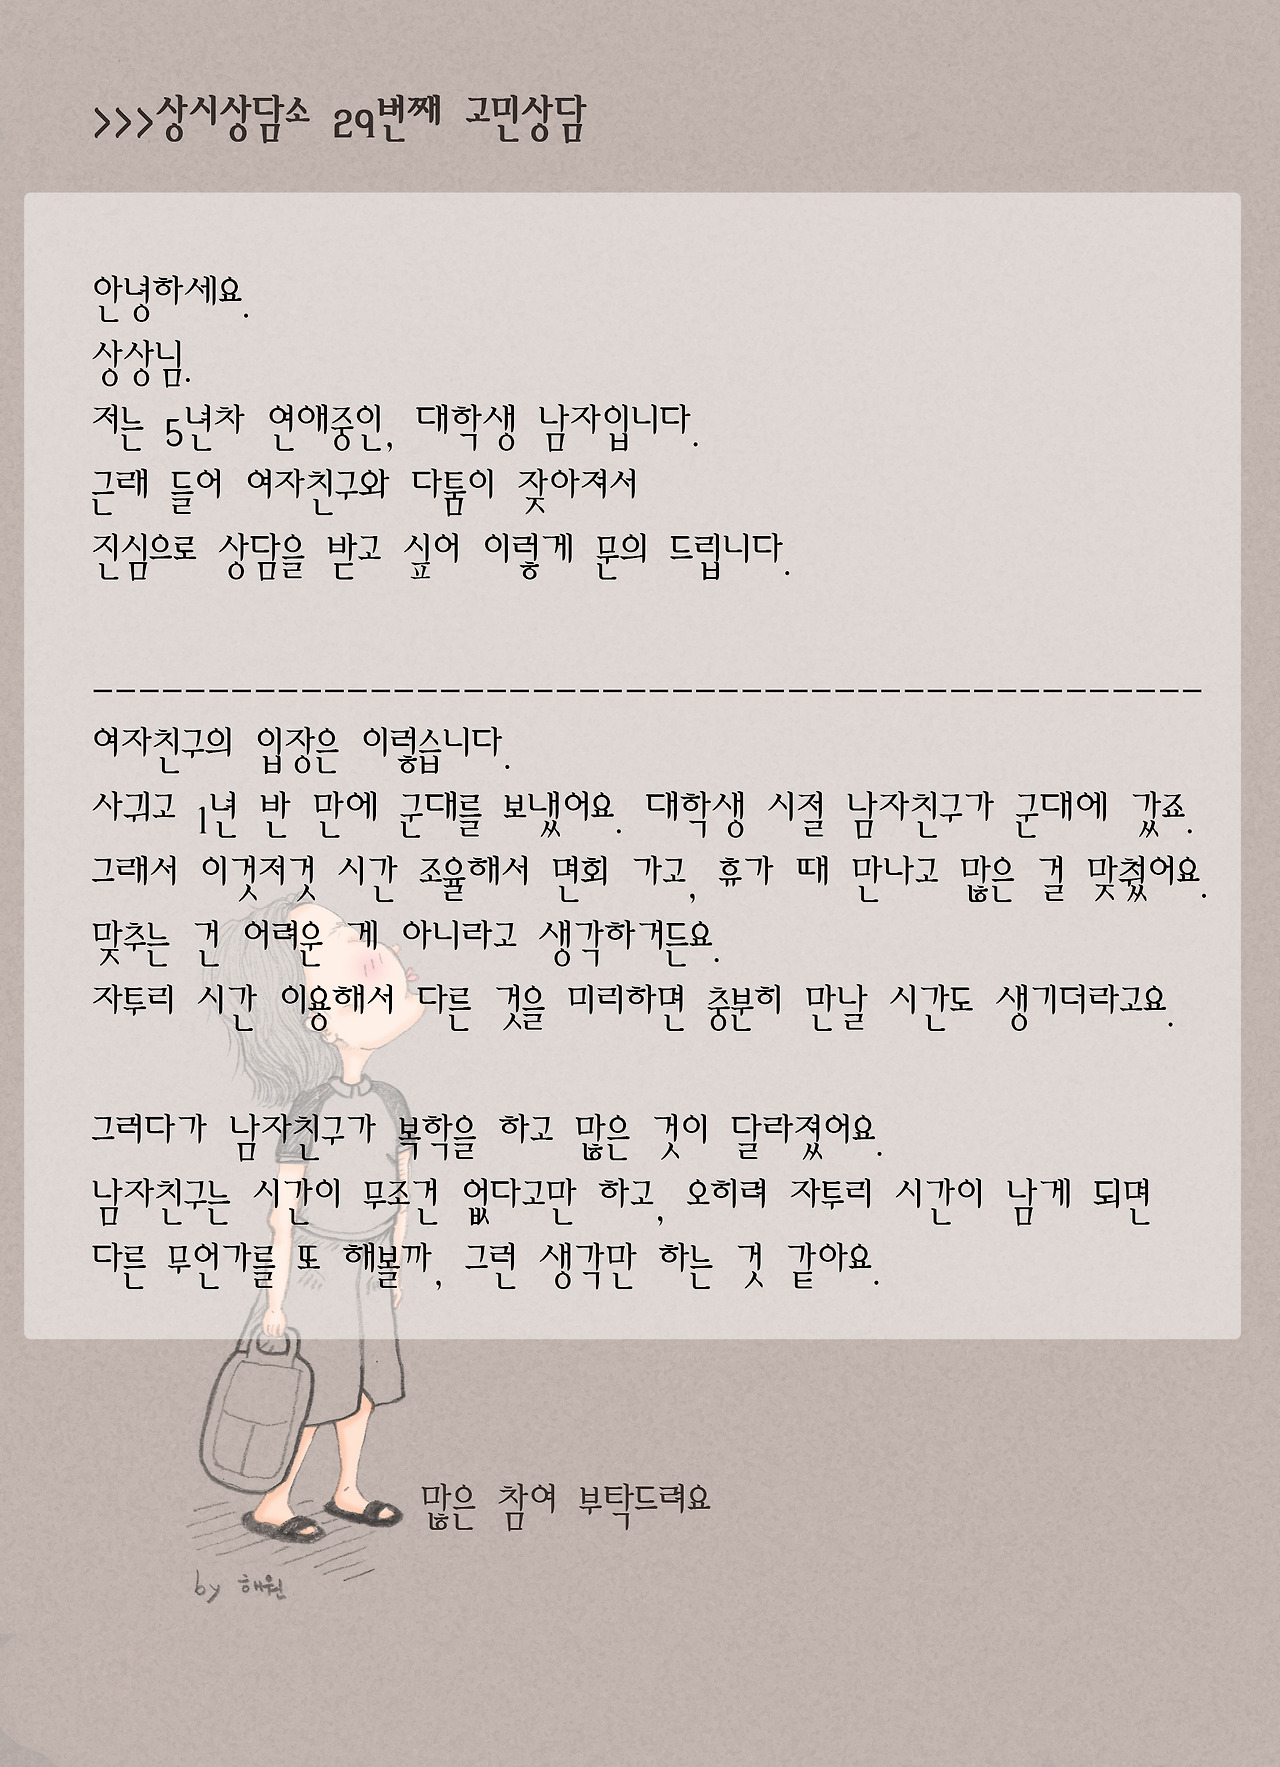 >>>상시상담소 29번째 고민상담
안녕하세요.
상상님.
저는 5년차 연애중인, 대학생 남자입니다.
근래 들어 여자친구와 다툼이 잦아져서
진심으로 상담을 받고 싶어 이렇게 문의 드립니다.
------------------------------------------------
여자친구의 입장은 이렇습니다.
사귀고 1년 반 만에 군대를 보냈어요. 대학생 시절 남자친구가 군대에 갔죠.
그래서 이것저것 시간 조율해서 면회 가고, 휴가 때 만나고 많은 걸 맞췄어요.
맞추는 건 어려운 게 아니라고 생각하거든요.
자투리 시간 이용해서 다른 것을 미리하면 충분히 만날 시간도 생기더라고요.
그러다가 남자친구가 복학을 하고 많은 것이 달라졌어요.
남자친구는 시간이 무조건 없다고만 하고, 오히려 자투리 시간이 남게 되면
다른 무언가를 또 해볼까, 그런 생각만 하는 것 같아요.
많은 참여 부탁드려요
by 해원